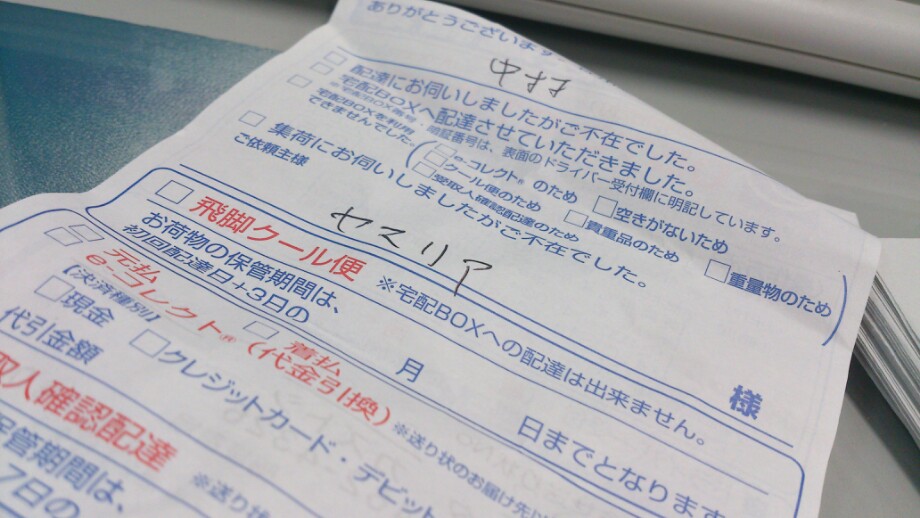 ありがとうございます
中村
配達にお伺いしましたがご不在でした。
宅配BOXへ配達させていただきました。
宅配BOX番号・暗証番号は、表面のドライバー受付欄に明記しています。
宅配BOXを利用できませんでした。
e-コレクト®のため
空きがないため
クール便のため
貴重品のため
重量物のため
受取人確認配達のため
集荷にお伺いしましたがご不在でした。
ご依頼主様
セスリア
様
飛脚クール便 ※宅配BOXへの配達は出来ません。
お荷物の保管期間は、
初回配達日+3日の 月 日までとなります
元払
e-コレクト® 着払(代金引換) ※送り状のお届け先以
【決済種別】
現金
クレジットカード・デビット
代引金額
取人確認配達 ※送り状
保管期間は、
7日の